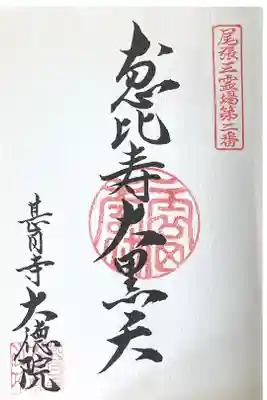 尾張三霊場第二番
恵比寿大黒天
甚目寺大徳院